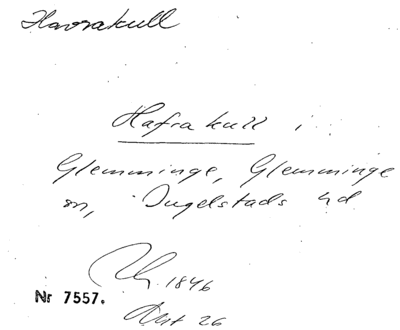 Havrakull
Hafrakull i
Glemminge, Glemminge
sn, Ingelstads hd
1846
Nr 7557.
Akt 26